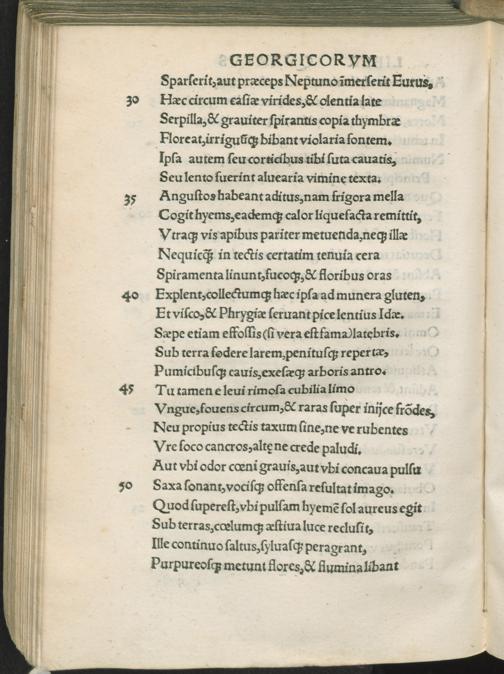 GEORGICORVM
Sparserit,aut præceps Neptuno īmerserit Eurus,
30 Hæc circum casiæ virides,& olentia late
Serpilla,& grauiter spirantis copia thymbræ
Floreat,irriguūq; bibant violaria fontem.
Ipsa autem seu corticibus tibi suta cauatis,
Seu lento fuerint aluearia vimine texta.
35 Angustos habeant aditus,nam frigora mella
Cogit hyems,eademq; calor liquefacta remittit,
Vtraq; vis apibus pariter metuenda,neq; illæ
Nequicq̃ in tectis certatim tenuia cera
Spiramenta linunt,fucoq;,& floribus oras
40 Explent,collectumq; hæc ipsa ad munera gluten,
Et visco,& Phrygiæ seruant pice lentius Idæ.
Sæpe etiam effossis (si vera est fama) latebris.
Sub terra fodere larem,penitusq; repertæ,
Pumicibusq; cauis,exesæq; arboris antro.
45 Tu tamen e leui rimosa cubilia limo
Vngue,fouens circum,& raras super inijce frōdes,
Neu propius tectis taxum sine,ne ve rubentes
Vre foco cancros,altę ne crede paludi.
Aut vbi odor cœni grauis,aut vbi concaua pulsu
50 Saxa sonant,vocisq; offensa resultat imago.
Quod superest,vbi pulsam hyemē sol aureus egit
Sub terras,cœlumq; æstiua luce reclusit,
Ille continuo saltus,syluasq; peragrant,
Purpureosq; metunt flores,& flumina libant